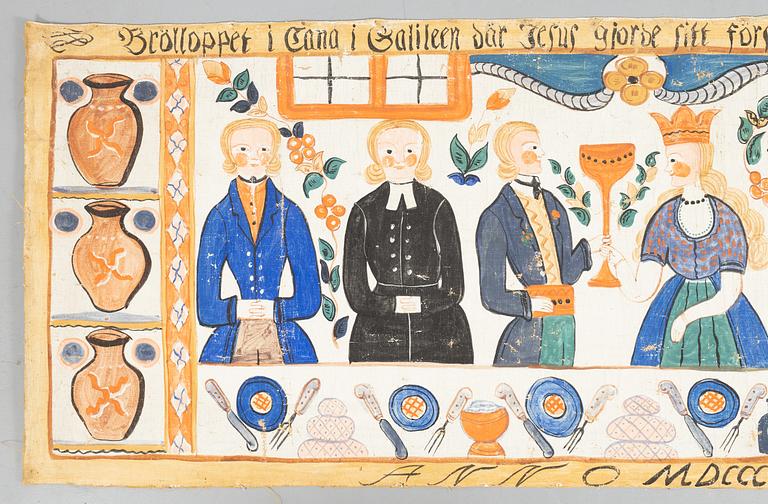 Brölloppet i Cana i Galileen där Jesus gjorde sitt förs
ANNO MDCCC